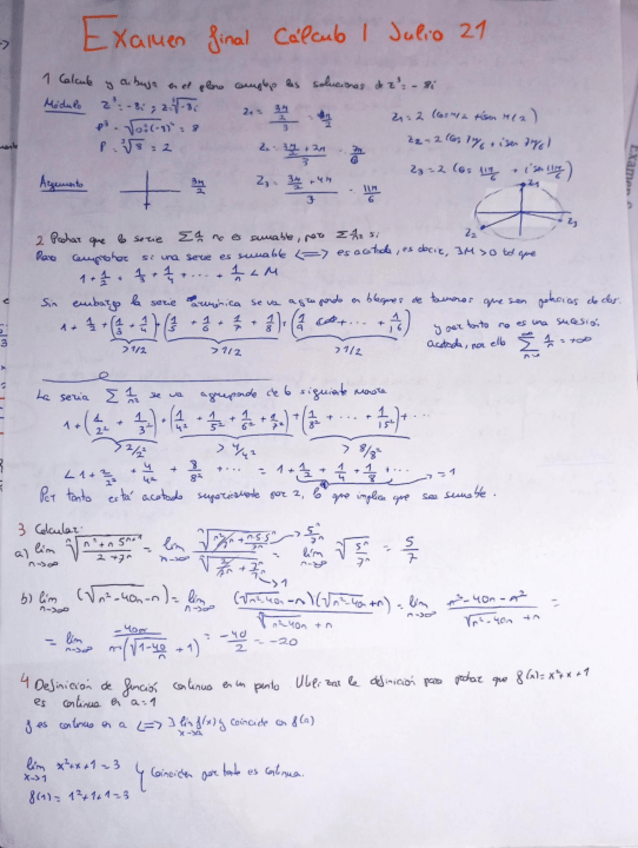 Examen final Cálculo I Julio 21
1 Calcula y dibuja en el plano complejo las soluciones de z³ = -8i
Módulo z³ = -8i ; z = ∛-8i
ρ³ = √(0²+(-8)²) = 8
ρ = ∛8 = 2
Argumento 3π/2
z₁ = (3π/2)/3 = π/2
z₂ = (3π/2 + 2π)/3 = 7π/6
z₃ = (3π/2 + 4π)/3 = 11π/6
z₁ = 2 (cos π/2 + i sen π/2)
z₂ = 2 (cos 7π/6 + i sen 7π/6)
z₃ = 2 (cos 11π/6 + i sen 11π/6)
z₁
z₂ z₃
2 Probar que la serie Σ 1/n no es sumable, pero Σ 1/n² sí
Para comprobar si una serie es sumable <=> es acotada, es decir, ∃M>0 tal que
1 + 1/2 + 1/3 + 1/4 + ... + 1/n < M
Sin embargo la serie armónica se va agrupando en bloques de tamaños que son potencias de dos.
1 + 1/2 + (1/3 + 1/4) + (1/5 + 1/6 + 1/7 + 1/8) + (1/9 + ... + 1/16)
>1/2 >1/2 >1/2
y por tanto no es una sucesión
acotada, por ello Σ 1/n = +∞
La serie Σ 1/n² se va agrupando de la siguiente manera
1 + (1/2² + 1/3²) + (1/4² + 1/5² + 1/6² + 1/7²) + (1/8² + ... + 1/15²) + ...
> 2/2² > 4/4² > 8/8²
< 1 + 2/2² + 4/4² + 8/8² + ... = 1 + 1/2 + 1/4 + 1/8 + ... = 1
Por tanto está acotado superiormente por 2, lo que implica que sea sumable.
3 Calcular:
a) lim n→∞ ⁿ√((n² + n 5ⁿ⁺¹)/(2 + 7ⁿ)) = lim n→∞ ⁿ√(n²/7ⁿ + n·5·5ⁿ/7ⁿ) / ⁿ√(2/7ⁿ + 7ⁿ/7ⁿ) = lim n→∞ ⁿ√(5ⁿ/7ⁿ) = 5/7
→ 5ⁿ/7ⁿ
→ 1
b) lim n→∞ (√(n²-40n) - n) = lim n→∞ (√(n²-40n) - n)(√(n²-40n) + n) / (√(n²-40n) + n) = lim n→∞ (n² - 40n - n²)/(√(n²-40n) + n) =
= lim n→∞ -40n / (n(√(1-40/n) + 1)) = -40/2 = -20
4 Definición de función continua en un punto Utilizar la definición para probar que f(x) = x² + x + 1
es continua en a = 1
f es continua en a <=> ∃ lim x→a f(x) y coincide con f(a)
lim x→1 x² + x + 1 = 3
Coinciden por tanto es continua.
f(1) = 1² + 1 + 1 = 3